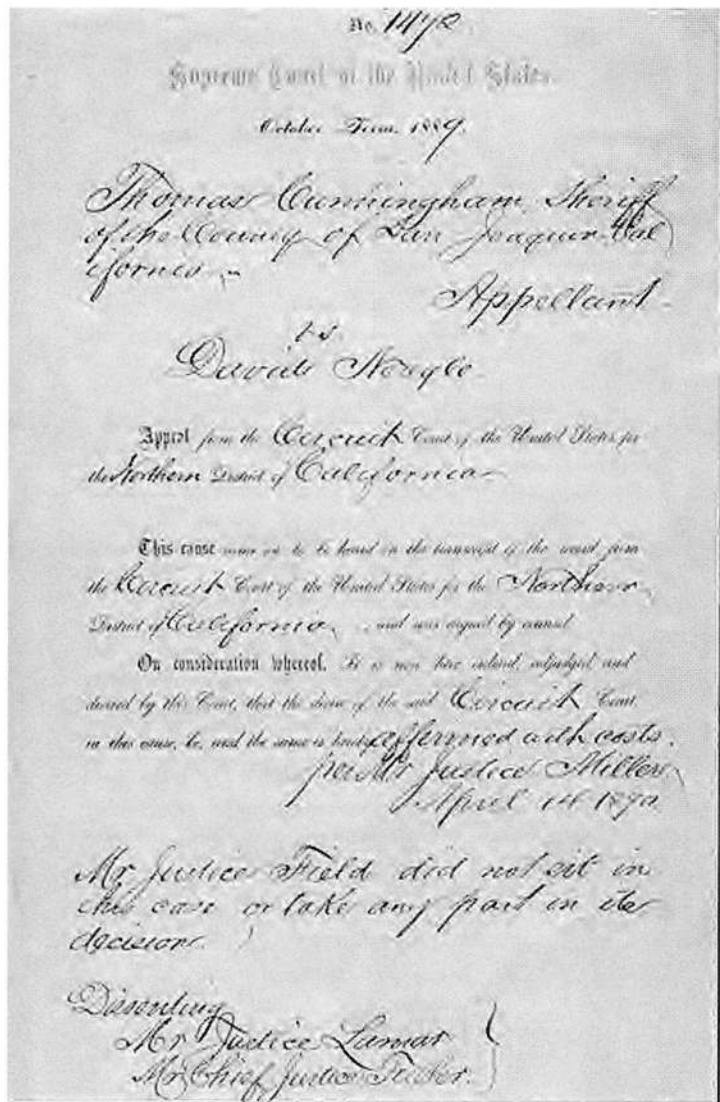 No. 1472
Supreme Court of the United States.
October Term, 1889.
Thomas Cunningham, Sheriff
of the County of San Joaquin Cal
ifornia
Appellant.
vs
David Neagle
Appeal from the Circuit Court of the United States for
the Northern District of California
This cause came on to be heard on the transcript of the record from
the Circuit Court of the United States for the Northern
District of California, and was argued by counsel
On consideration whereof, It is now here ordered, adjudged and
decreed by this Court, that the decree of the said Circuit Court
in this cause, be, and the same is hereby affirmed with costs.
per Mr Justice Miller
April 14 1890
Mr Justice Field did not sit in
this case or take any part in its
decision
Dissenting
Mr Justice Lamar
Mr Chief Justice Fuller.